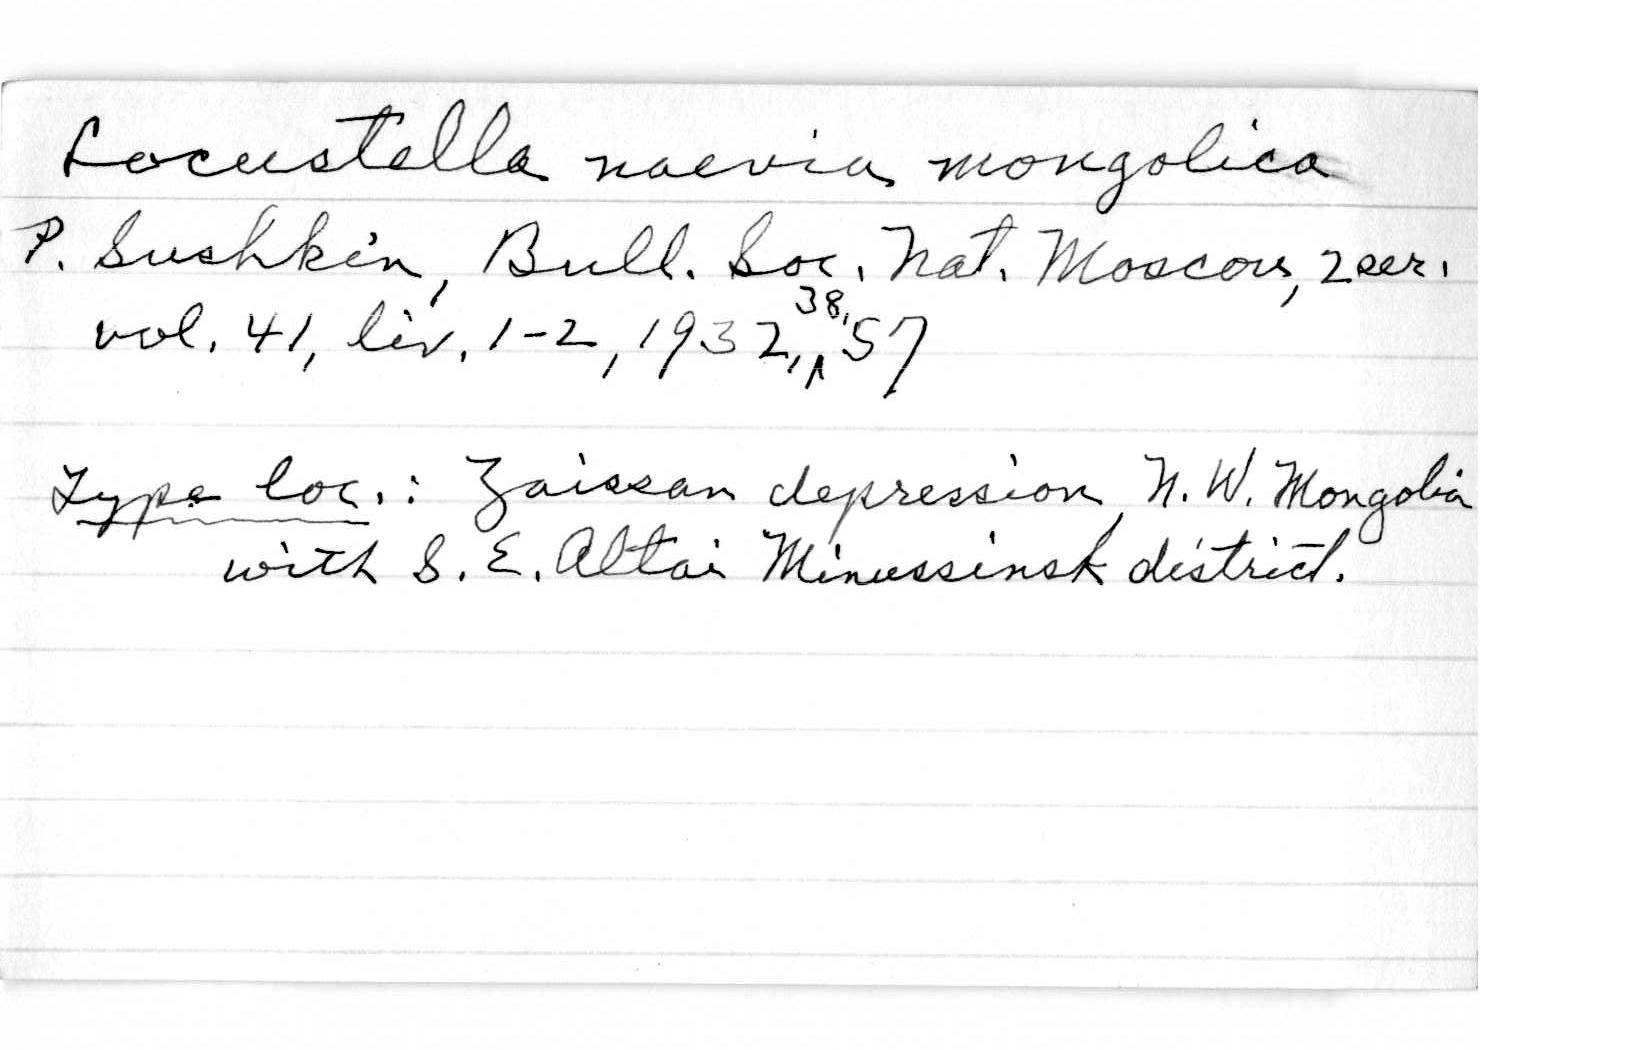 Locustella naevia mongolica
P. Sushkin, Bull. Soc. Nat. Moscou, 2 ser.
vol. 41, liv. 1-2, 1932, 38, 57
Type loc.: Zaissan depression, N. W. Mongolia
with S. E. Altai Minussinsk district.